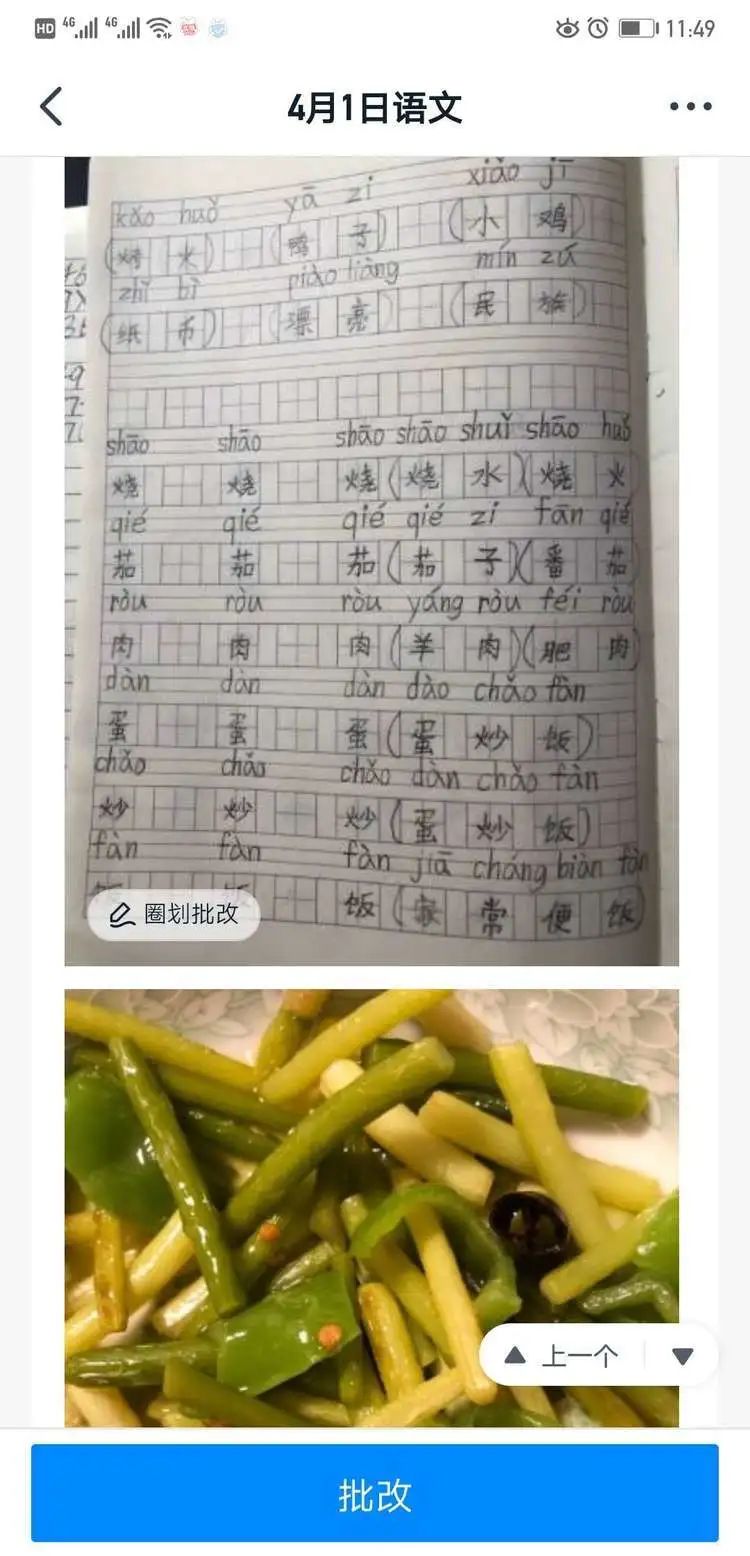 HD 4G 4G 11:49
4月1日语文
kǎo huǒ yā zi xiǎo jī
(烤 火) (鸭 子) (小 鸡)
zhǐ bì piào liàng mín zú
(纸 币) (漂 亮) (民 族)
shāo shāo shāo shāo shuǐ shāo huǒ
烧 烧 烧 (烧 水)(烧 火
qié qié qié qié zi fān qié
茄 茄 茄 (茄 子)(番 茄
ròu ròu ròu yáng ròu féi ròu
肉 肉 肉 (羊 肉)(肥 肉)
dàn dàn dàn dào chǎo fàn
蛋 蛋 蛋 (蛋 炒 饭)
chǎo chǎo chǎo dàn chǎo fàn
炒 炒 炒 (蛋 炒 饭)
fàn fàn fàn jiā cháng biàn fàn
饭 (家 常 便 饭)
圈划批改
上一个
批改